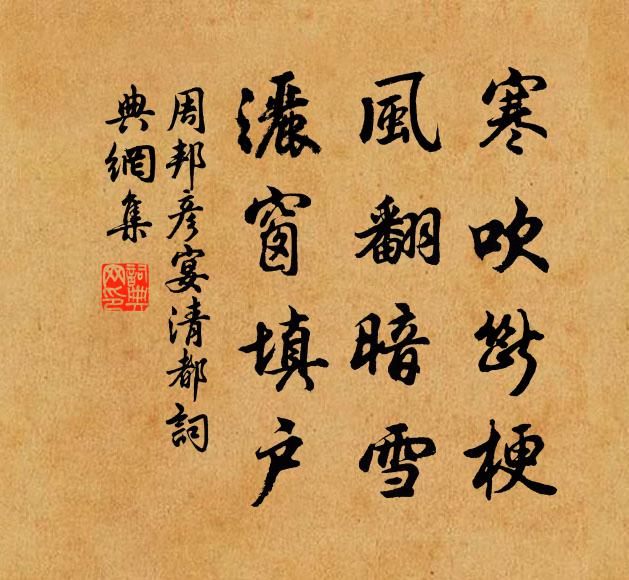 寒吹斷梗
風翻暗雪
灑窗填戶
周邦彥宴清都詞
典網集
詞典網印